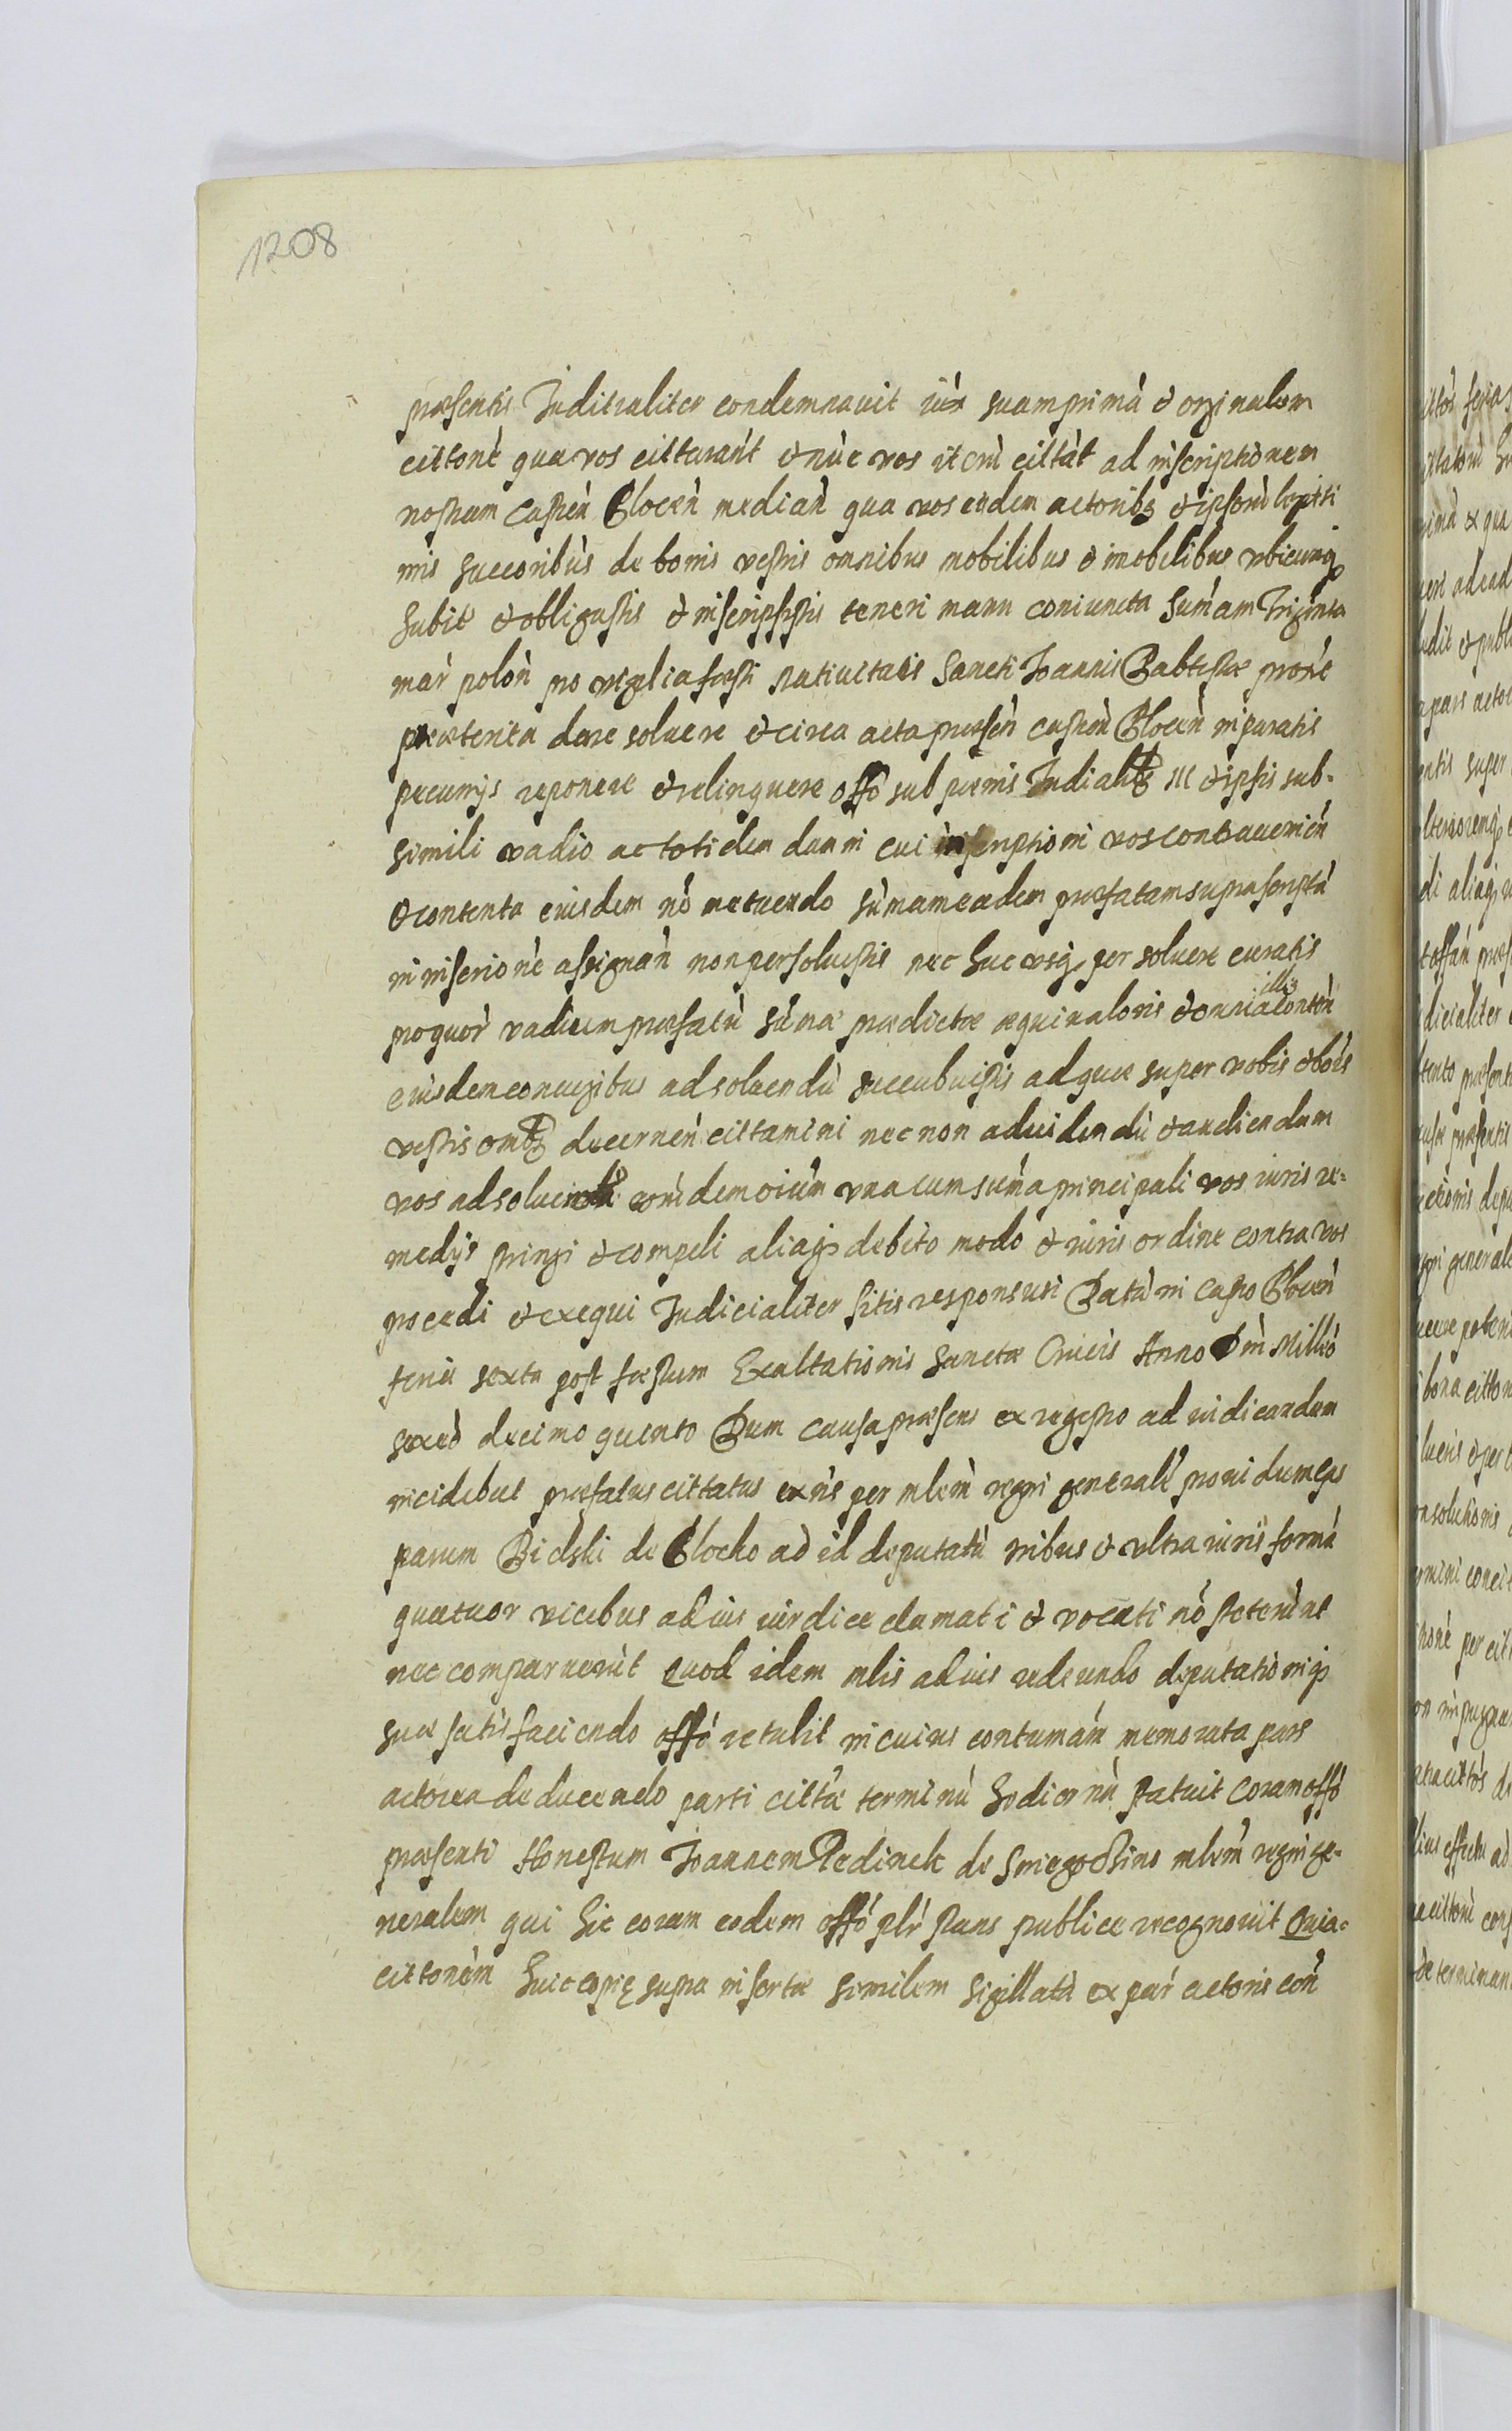 1208
præsentis Juditialiter condemnauit iux suam primã & originalem
cittonẽ qua vos cittarant & nũc vos iterũ cittat ad inscriptionem
nostram Castreñ Plocen median qua vos eisdem actoribg et ipsorũ legitti
mis succoribus de bonis vestris omnibus mobilibus & imobilibus vbicunqg
habit & obligastis & inscripsistis teneri manu coniuncta sumam Triginta
mar polon pro vigilia fæsti natiuitatis Sancti Joannis Babtistæ proxẽ
præterita dare soluere & circa acta præsen castren Plocen in paratis
pecunijs reponere & relinquere offo sub pœnis Judialibg &c & ipsis sub-
simili vadio ac totidem damni cui inscriptioni vos contrauenien
& contenta eiusdem nõ metuendo sũmam eadem præfatam suprascriptã
in inserione assignan non persoluistis nec huc vsqg persoluere curatis
proquor vadium præfatũ sũmæ prædictæ æquiualoris & omnia illig conten
eiusdem conuigibus ad soluendũ succubuistis ad quæ super vobis & bois
vestris ombg decernen cittamini nec non ad videndũ & audiendum
vos ad soluend eorũdem oiũm vna cum sum̃a principali vos iuris re-
medijs stringi & compeli aliaqg debito modo & iuris ordine contra vos
procedi & exequi Judicialiter sitis responsuri Datũ in Castro Plocen
feria sexta post fæstum Exaltationis Sanctæ Crucis Anno Dni Millio
sexco decimo quinto Dum causa præsens ex regestro ad iudicandum
incidebat præfatus cittatus exñs per mlem regni generale prouidum Gas
parum Bielski de Plocko ad id deputatũ tribus & vltra iuris formã
quatuor vicibus ad ius iurdice clamati & vocati nõ steterunt
nec comparuerũt Quod idem mlis ad ius redeundo deputationiqg
suæ satisfaciendo offo retulit in cuius contumam memorata pars
actorea deducendo parti cittæ terminũ hodiernũ statuit coram offo
præsenti Honestum Joannem Redinek de Sniegocino mlem regni ge-
neralem qui hic coram eodem offo plr stans publice recognouit Quia-
cittonem huic copię supra insertæ similem sigillatã ex par actoris con